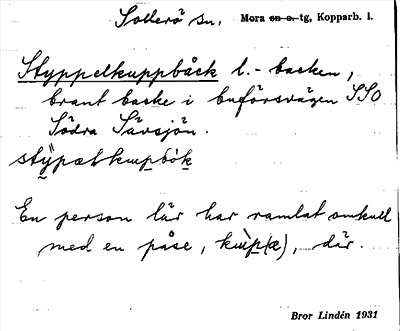 Sollerö sn. Mora sn o. tg, Kopparb. l.
Styppelkuppbåck l. - backen,
brant backe i buförsvägen SSO
Södra Sävsjön.
En person lär har ramlat omkull
med en påse, där.
Bror Lindén 1931